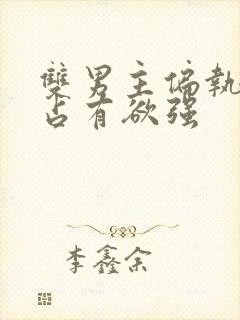 雙男主偏執
占有欲强
李鑫余